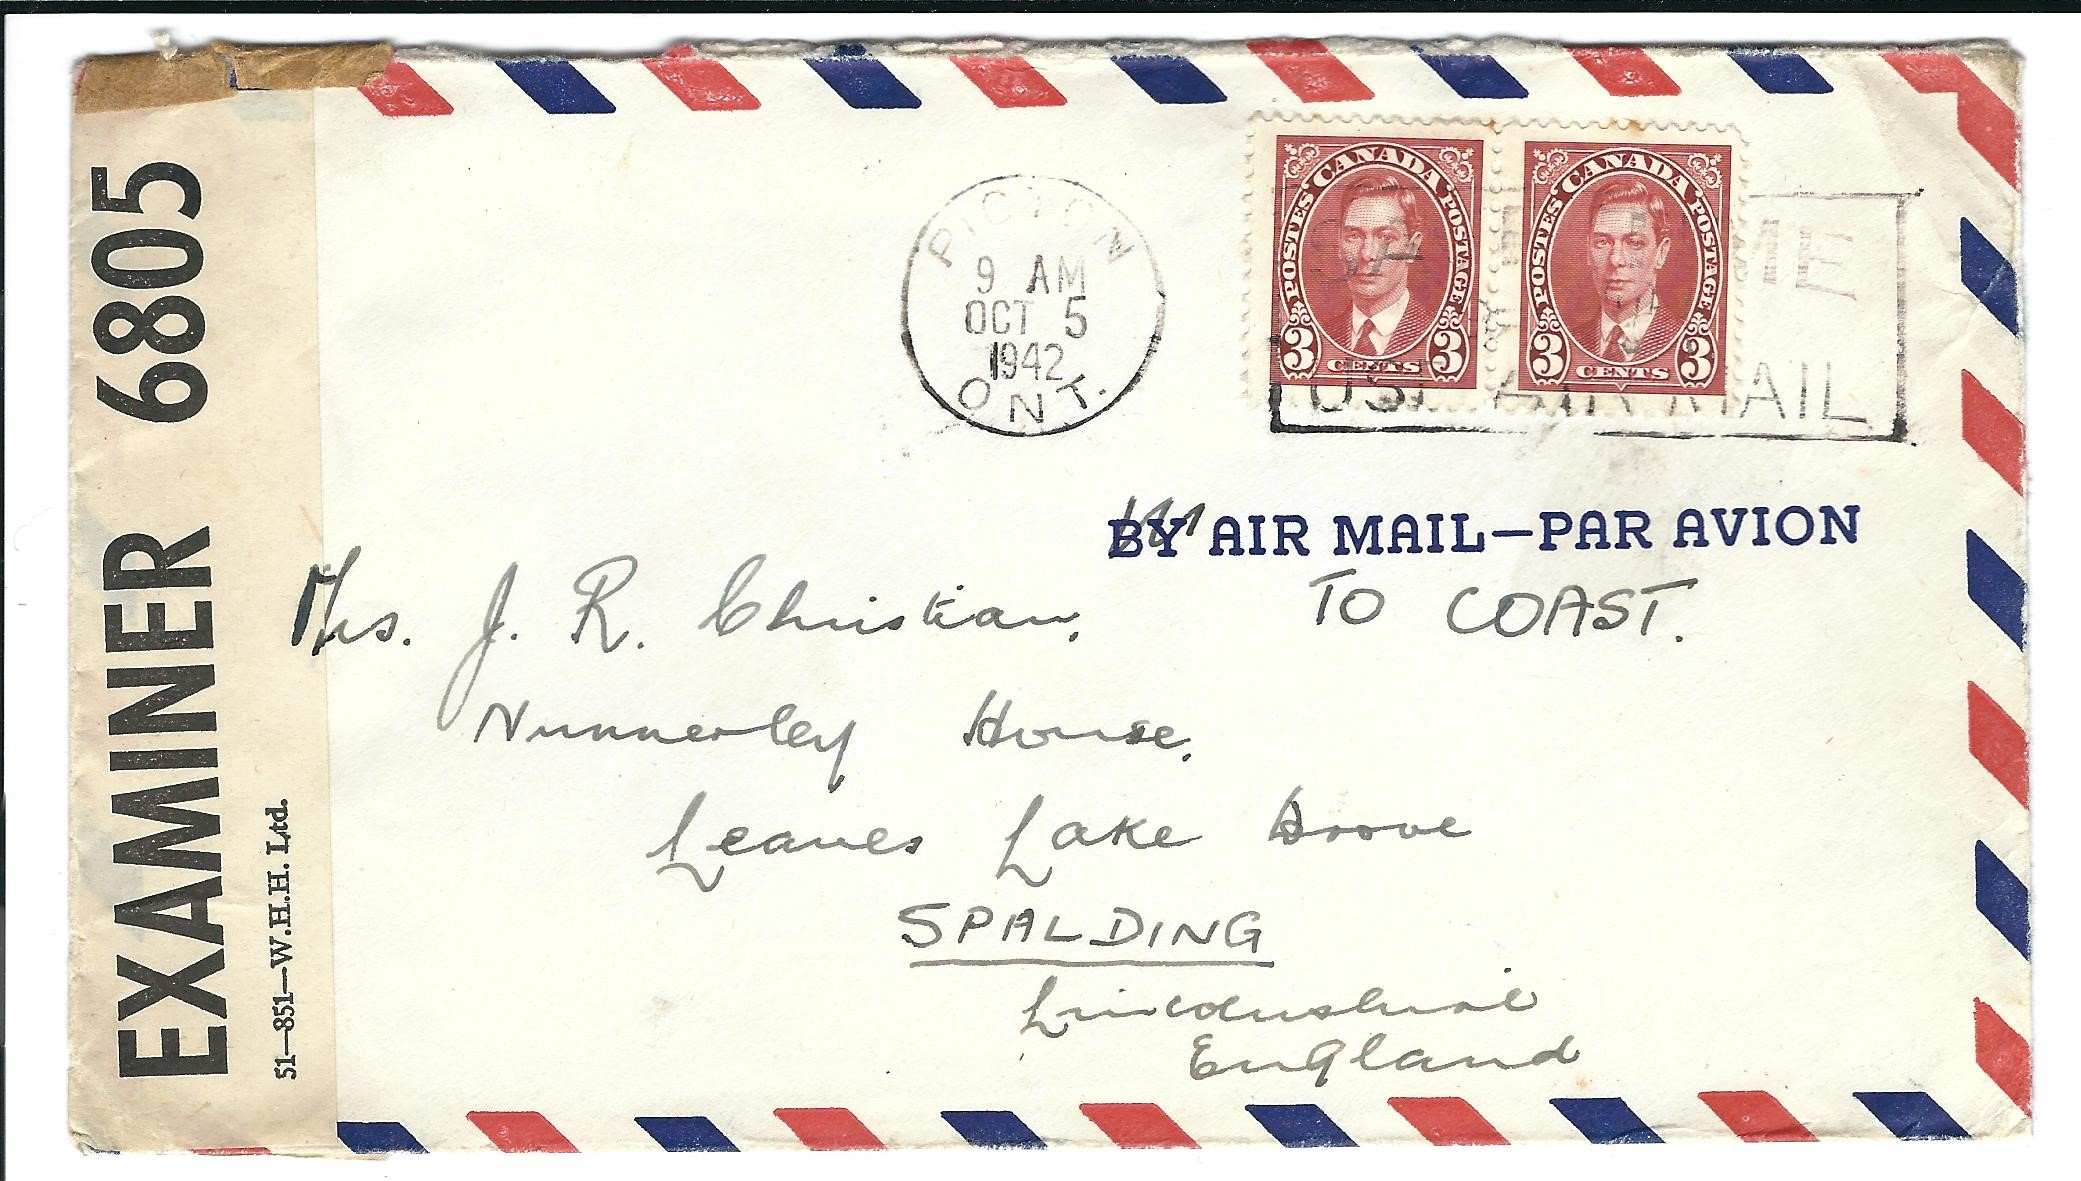 EXAMINER 6805
51—851—W.H.H. Ltd.
PICTON
9 AM
OCT 5
1942
ONT.
CANADA
POSTES POSTAGE
3 CENTS 3
CANADA
POSTES POSTAGE
3 CENTS 3
SA TIME
USE AIR MAIL
BY AIR MAIL—PAR AVION
TO COAST.
Mrs. J. R. Christian,
Nunnerley House,
Leaves Lake Drove
SPALDING
Lincolnshire
England